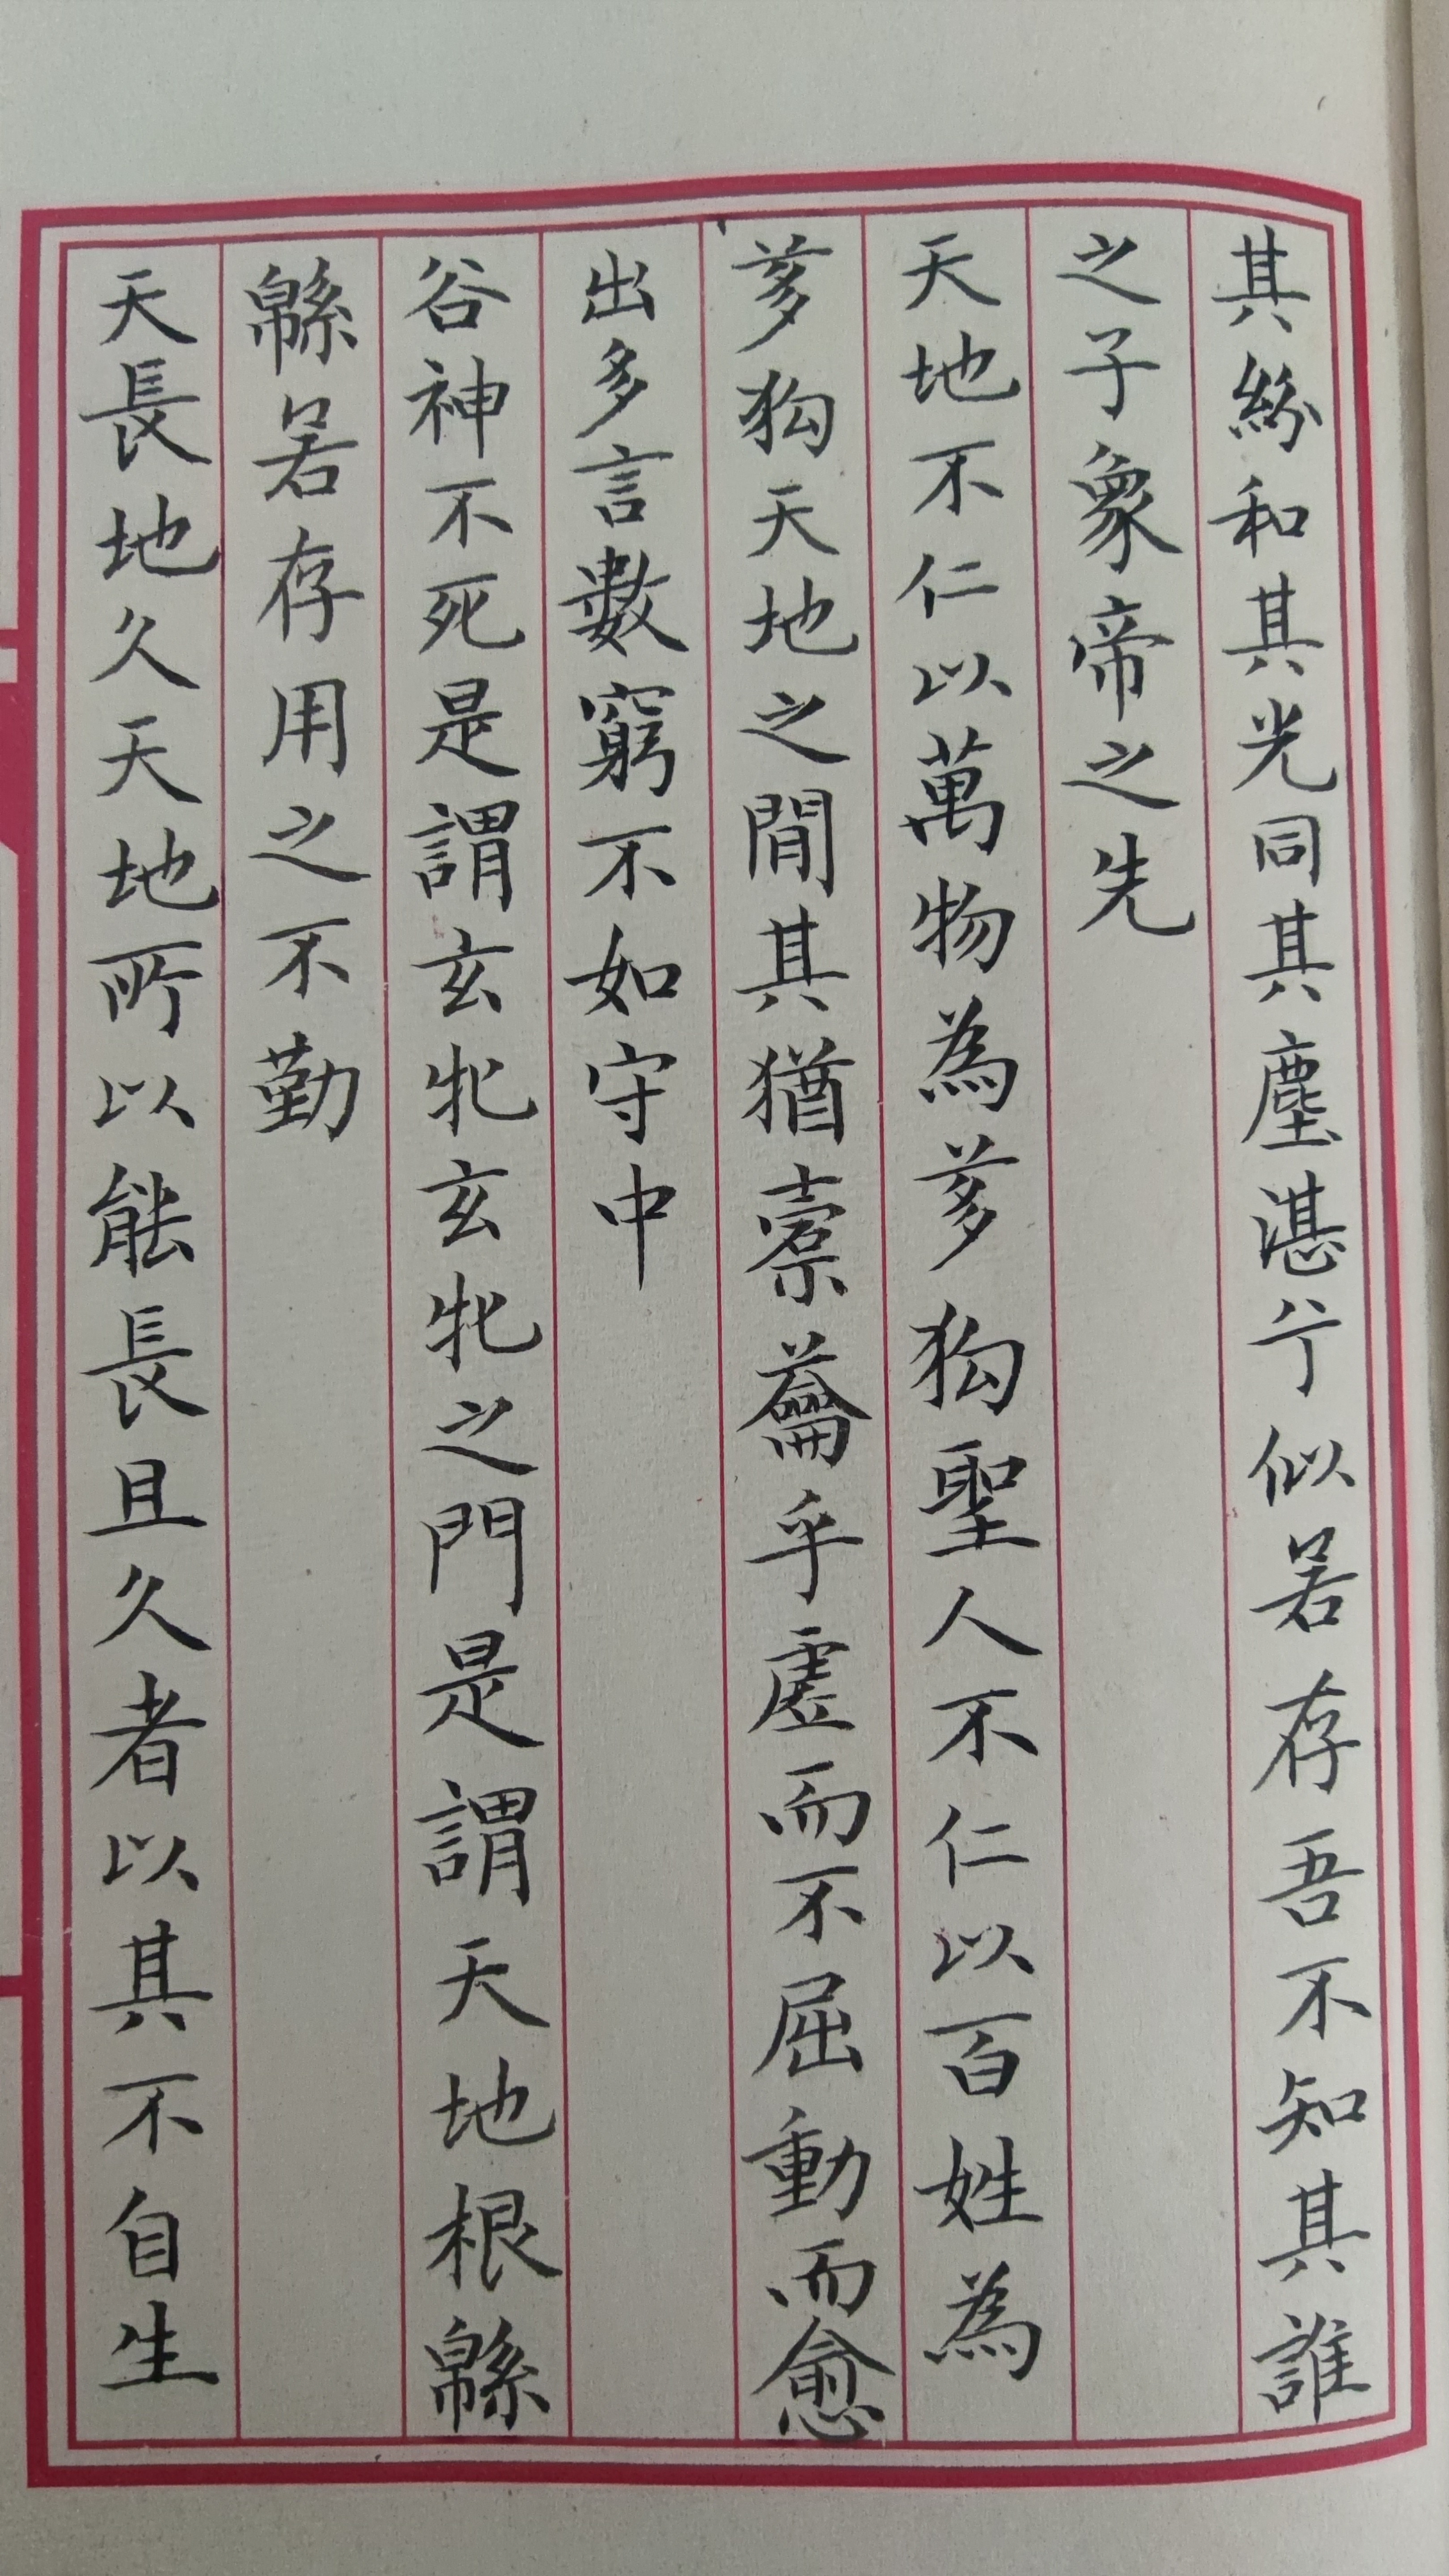 其紛和其光同其塵湛兮似若存吾不知其誰
之子象帝之先
天地不仁以萬物為芻狗聖人不仁以百姓為
芻狗天地之間其猶橐籥乎虛而不屈動而愈
出多言數窮不如守中
谷神不死是謂玄牝玄牝之門是謂天地根緜
緜若存用之不勤
天長地久天地所以能長且久者以其不自生